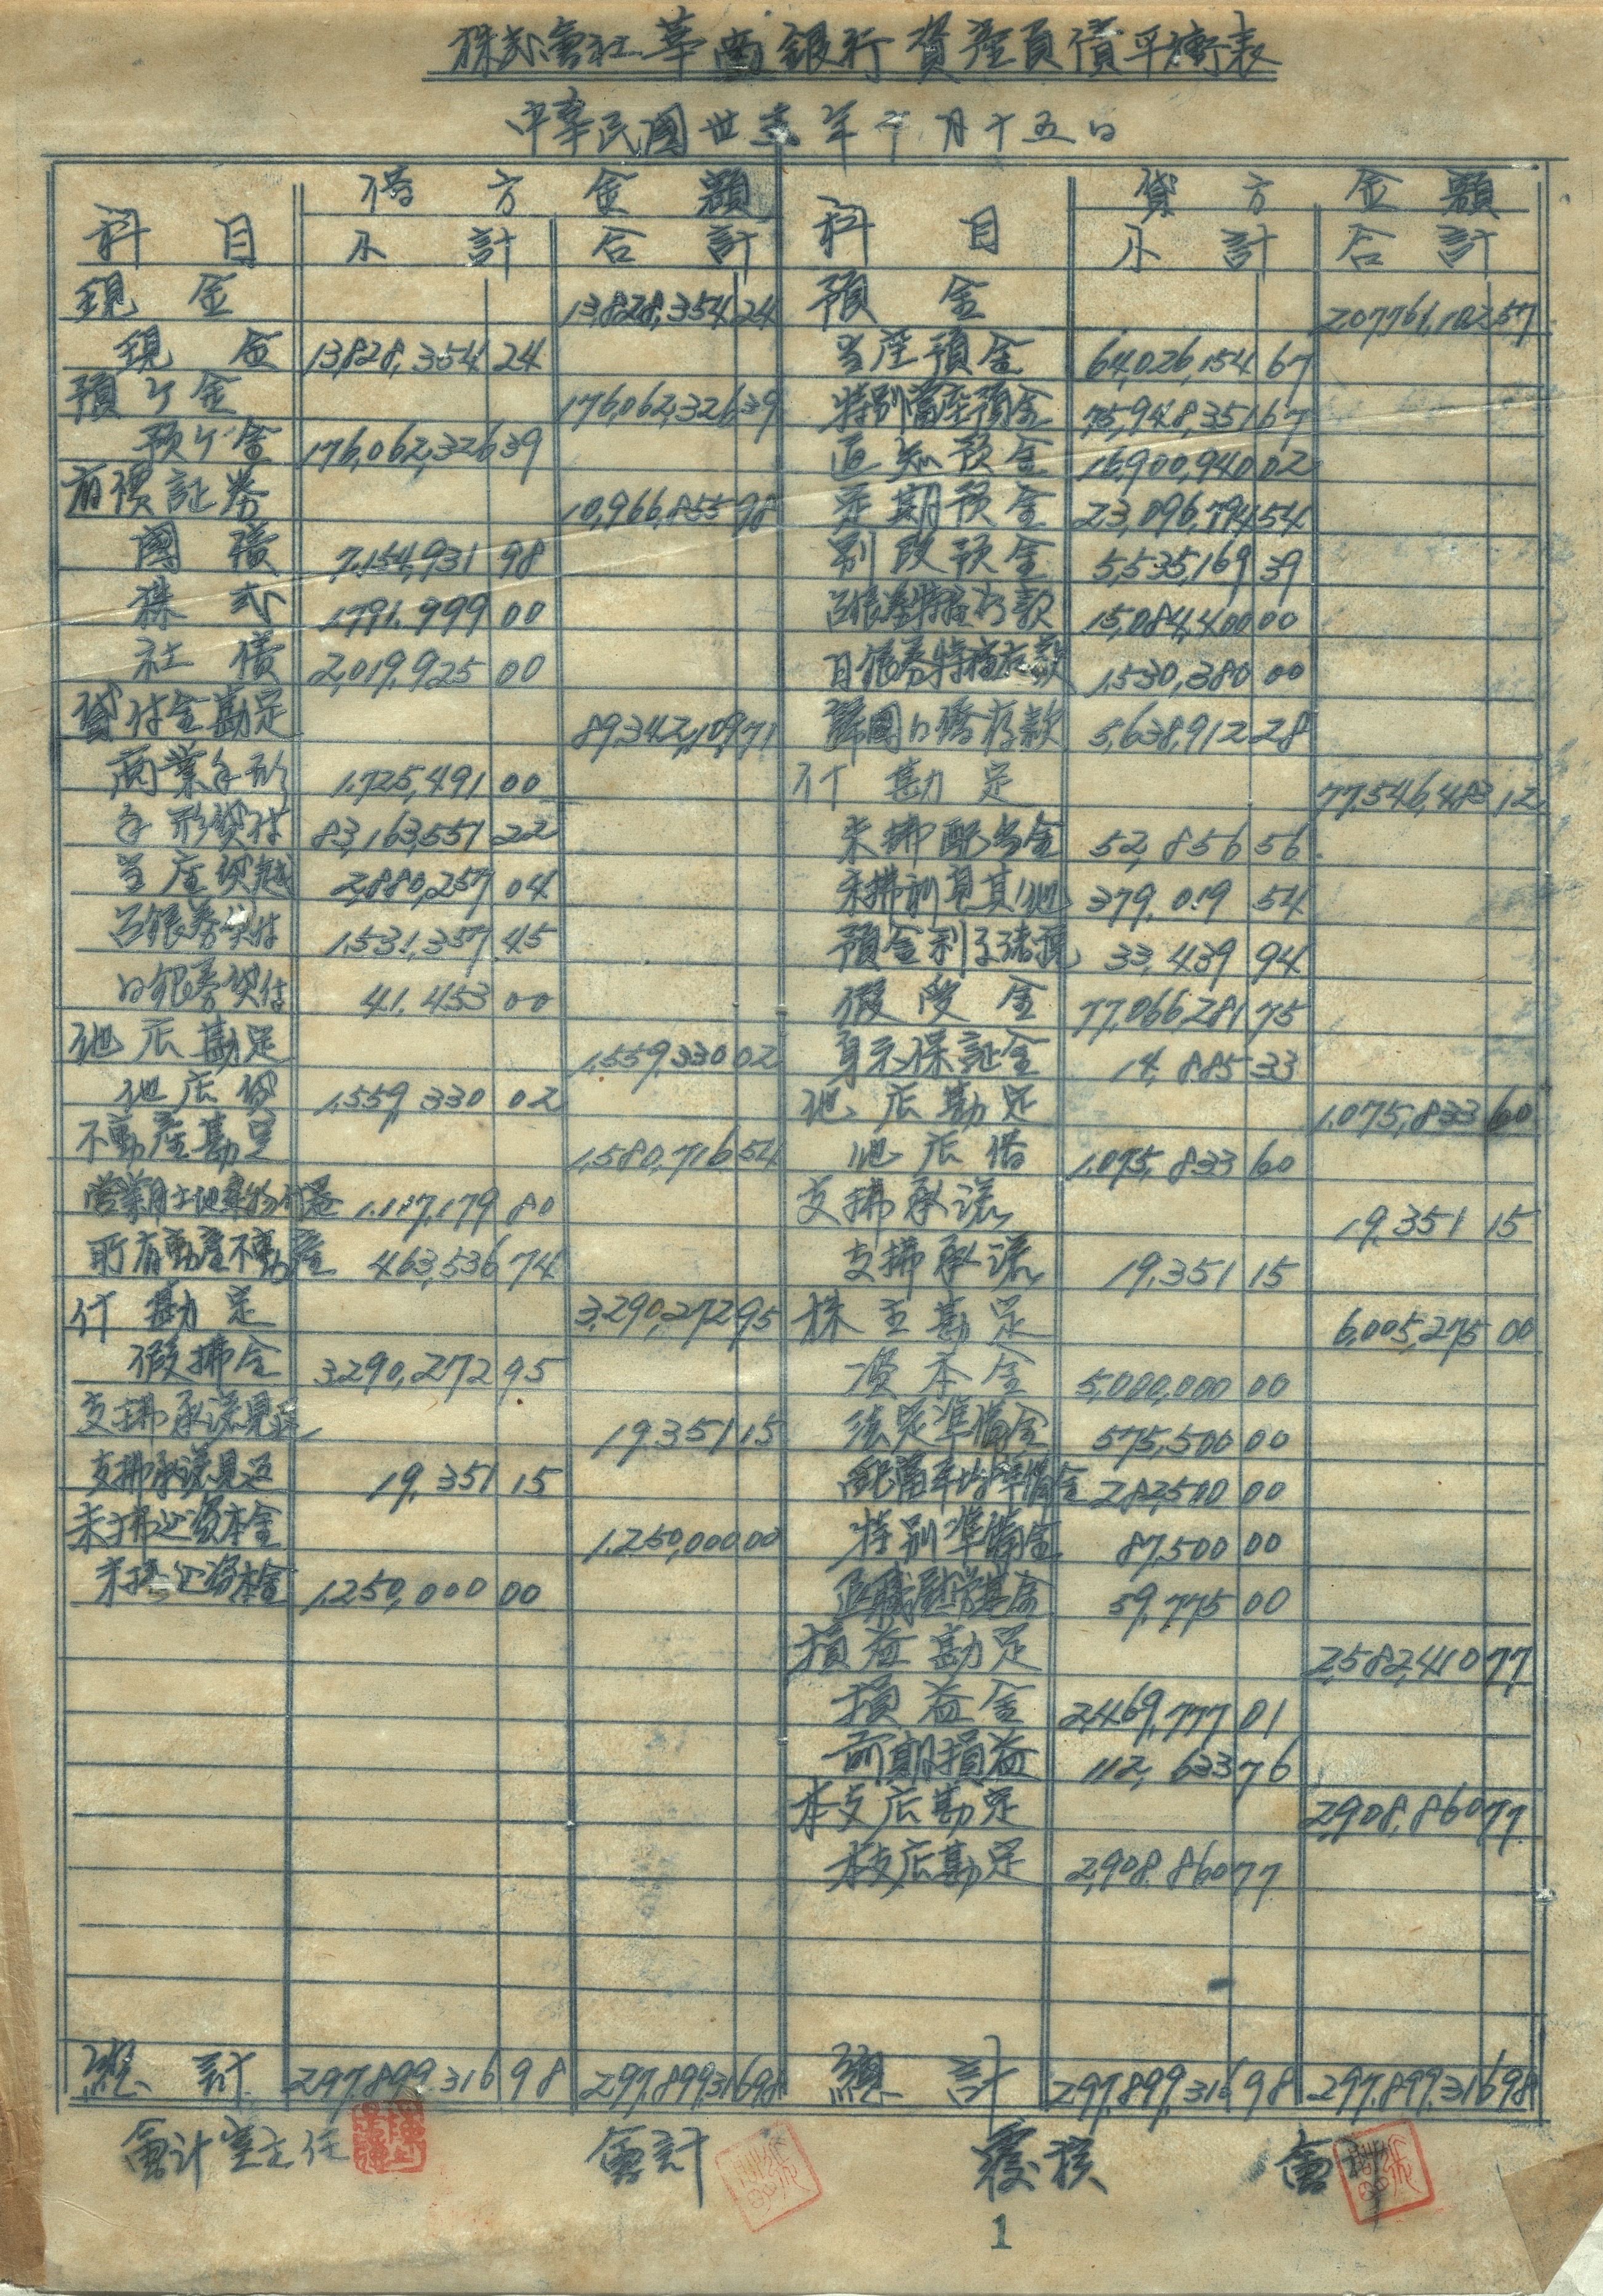 株式會社華南銀行資產負債平衡表
中華民國卅五年 月十五日
科目 借方金額 科目 貸方金額
小計 合計 小計 合計
現金 13,828,354 24 預金 207,761,102 57
現金 13,828,354 24 当座預金 64,026,154 67
預ケ金 176,062,326 39 特別當座預金 75,948,351 67
預ケ金 176,062,326 39 通知預金 16,900,940 02
有價証券 10,966,855 98 定期預金 23,096,794 54
國債 7,154,931 98 別段預金 5,535,169 39
株式 1,791,999 00 台銀券特種存款 15,084,400 00
社債 2,019,925 00 日銀券特種存款 1,530,380 00
貸付金勘定 89,342,109 71 韓國日僑存款 5,638,912 28
商業手形 1,725,491 00 什勘定 77,546,483 12
手形貸付 83,163,551 22 未拂配当金 52,856 56
当座貸越 2,880,257 04 未拂利息其他 379,019 54
台銀券貸付 1,531,357 45 預金利子諸税 33,439 94
日銀券貸付 41,453 00 假受金 77,066,281 75
他店勘定 1,559,330 02 身元保証金 14,885 33
他店貸 1,559,330 02 他店勘定 1,075,833 60
不動產勘定 1,580,716 54 他店借 1,075,833 60
營業用土地建物什器 1,117,179 80 支拂承諾 19,351 15
所有動產不動產 463,536 74 支拂承諾 19,351 15
什勘定 3,290,272 95 株主勘定 6,005,275 00
假拂金 3,290,272 95 資本金 5,000,000 00
支拂承諾見返 19,351 15 法定準備金 575,500 00
支拂承諾見返 19,351 15 配當平均準備金 282,500 00
未拂込資本金 1,250,000 00 特別準備金 87,500 00
未拂込資本金 1,250,000 00 退職慰労基金 59,775 00
損益勘定 2,582,410 77
損益金 2,469,777 01
前期損益 112,633 76
本支店勘定 2,908,860 77
本支店勘定 2,908,860 77
總計 297,899,316 98 297,899,316 98 總計 297,899,316 98 297,899,316 98
會計室主任 會計 覆核 會
1